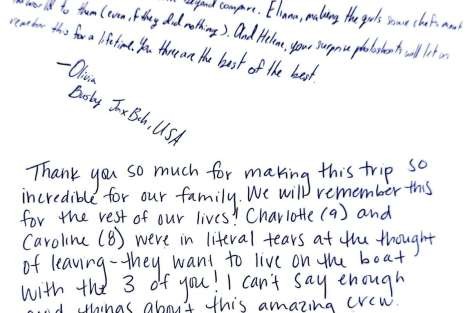 beyond compare. Eliana, making the girls some chefs meant
world to them (even if they did nothing). And Helene, your surprise photoshoots will let us
remember this for a lifetime. You three are the best of the best.
—Olivia
Busby Jax Bch, USA
Thank you so much for making this trip so
incredible for our family. We will remember this
for the rest of our lives! Charlotte (9) and
Caroline (8) were in literal tears at the thought
of leaving - they want to live on the boat
with the 3 of you! I can't say enough
good things about this amazing crew.